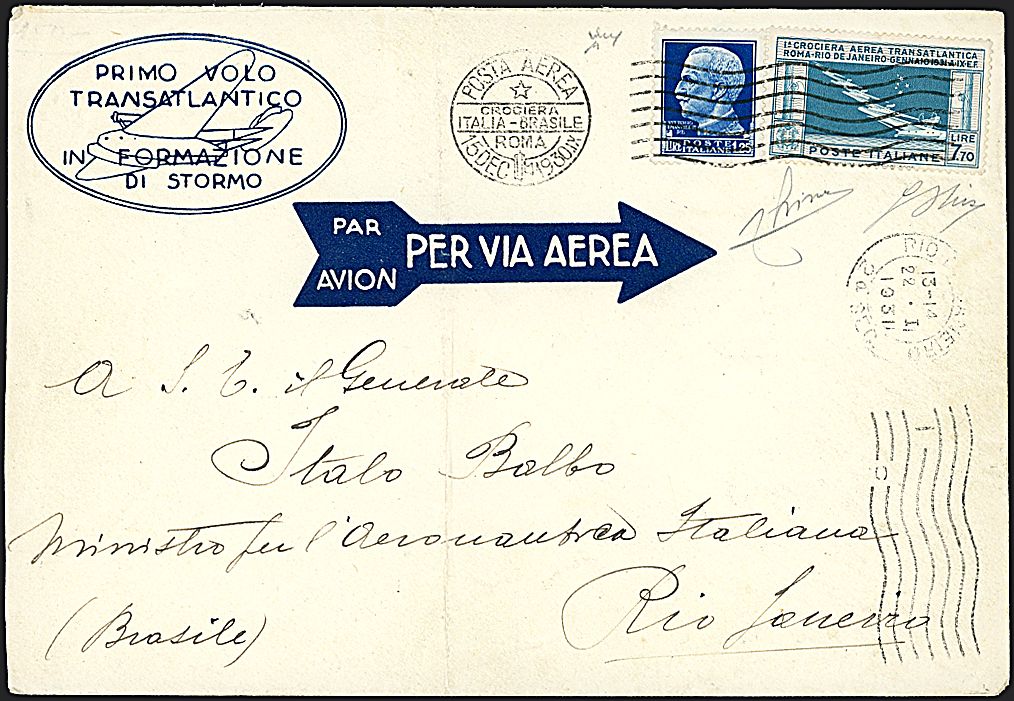 PRIMO VOLO
TRANSATLANTICO
IN FORMAZIONE
DI STORMO
POSTA AEREA
CROCIERA
ITALIA-BRASILE
ROMA
15 DEC 1930 IX
POSTE
ITALIANE
1,25
Iª CROCIERA AEREA TRANSATLANTICA
ROMA-RIO DE JANEIRO-GENNAIO 1931 A.IX E.F.
LIRE
7,70
POSTE ITALIANE
PAR
AVION
PER VIA AEREA
RIO
13-14
22.I
1931
A S. E. il Generale
Italo Balbo
Ministro per l'Aeronautica Italiana
Rio Janeiro
(Brasile)